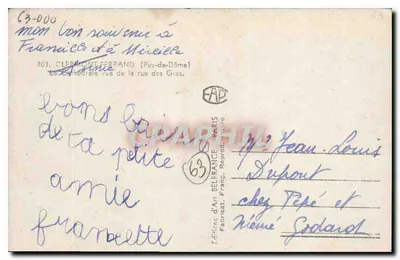 63-000
mon bon souvenir à
Francille et à Mireille
703. CLERMONT-FERRAND (Puy-de-Dôme)
La Cathédrale vue de la rue des Gras.
bons baisers
de ta petite
amie
francette
63
Editions d'Art BELFRANCE - PARIS
Fabricat. Franç. Reproduct.
Mr Jean-Louis
Dupont
chez Pépé et
Mémé Godard